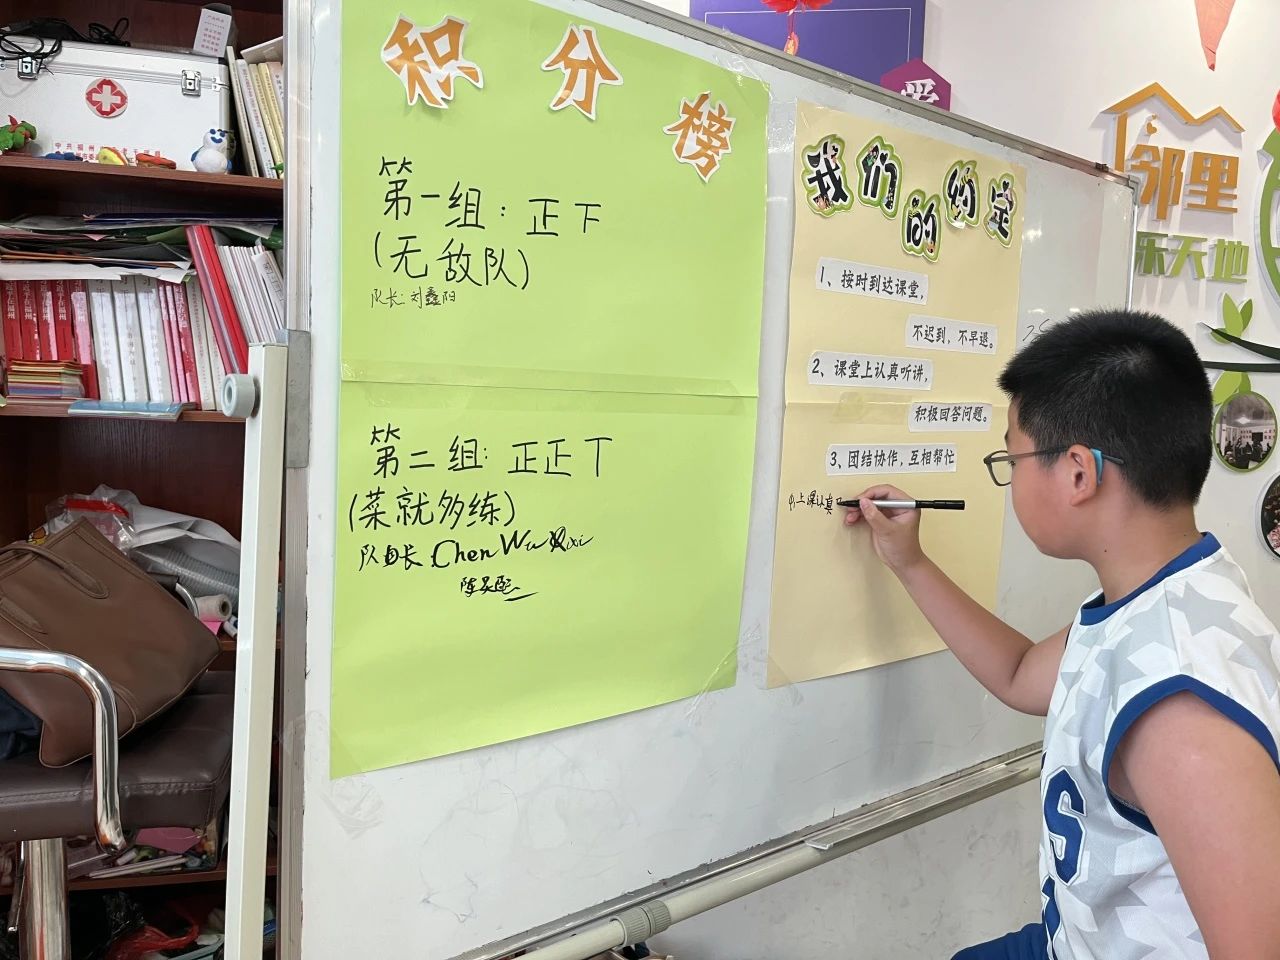 积分榜
第一组：正下
(无敌队)
队长：刘鑫阳
第二组：正正丅
(菜就多练)
队长 Chen Wu
我们的约定
1、按时到达课堂，
不迟到，不早退。
2、课堂上认真听讲，
积极回答问题。
3、团结协作，互相帮忙
上课认真
邻里
乐天地
爱
S